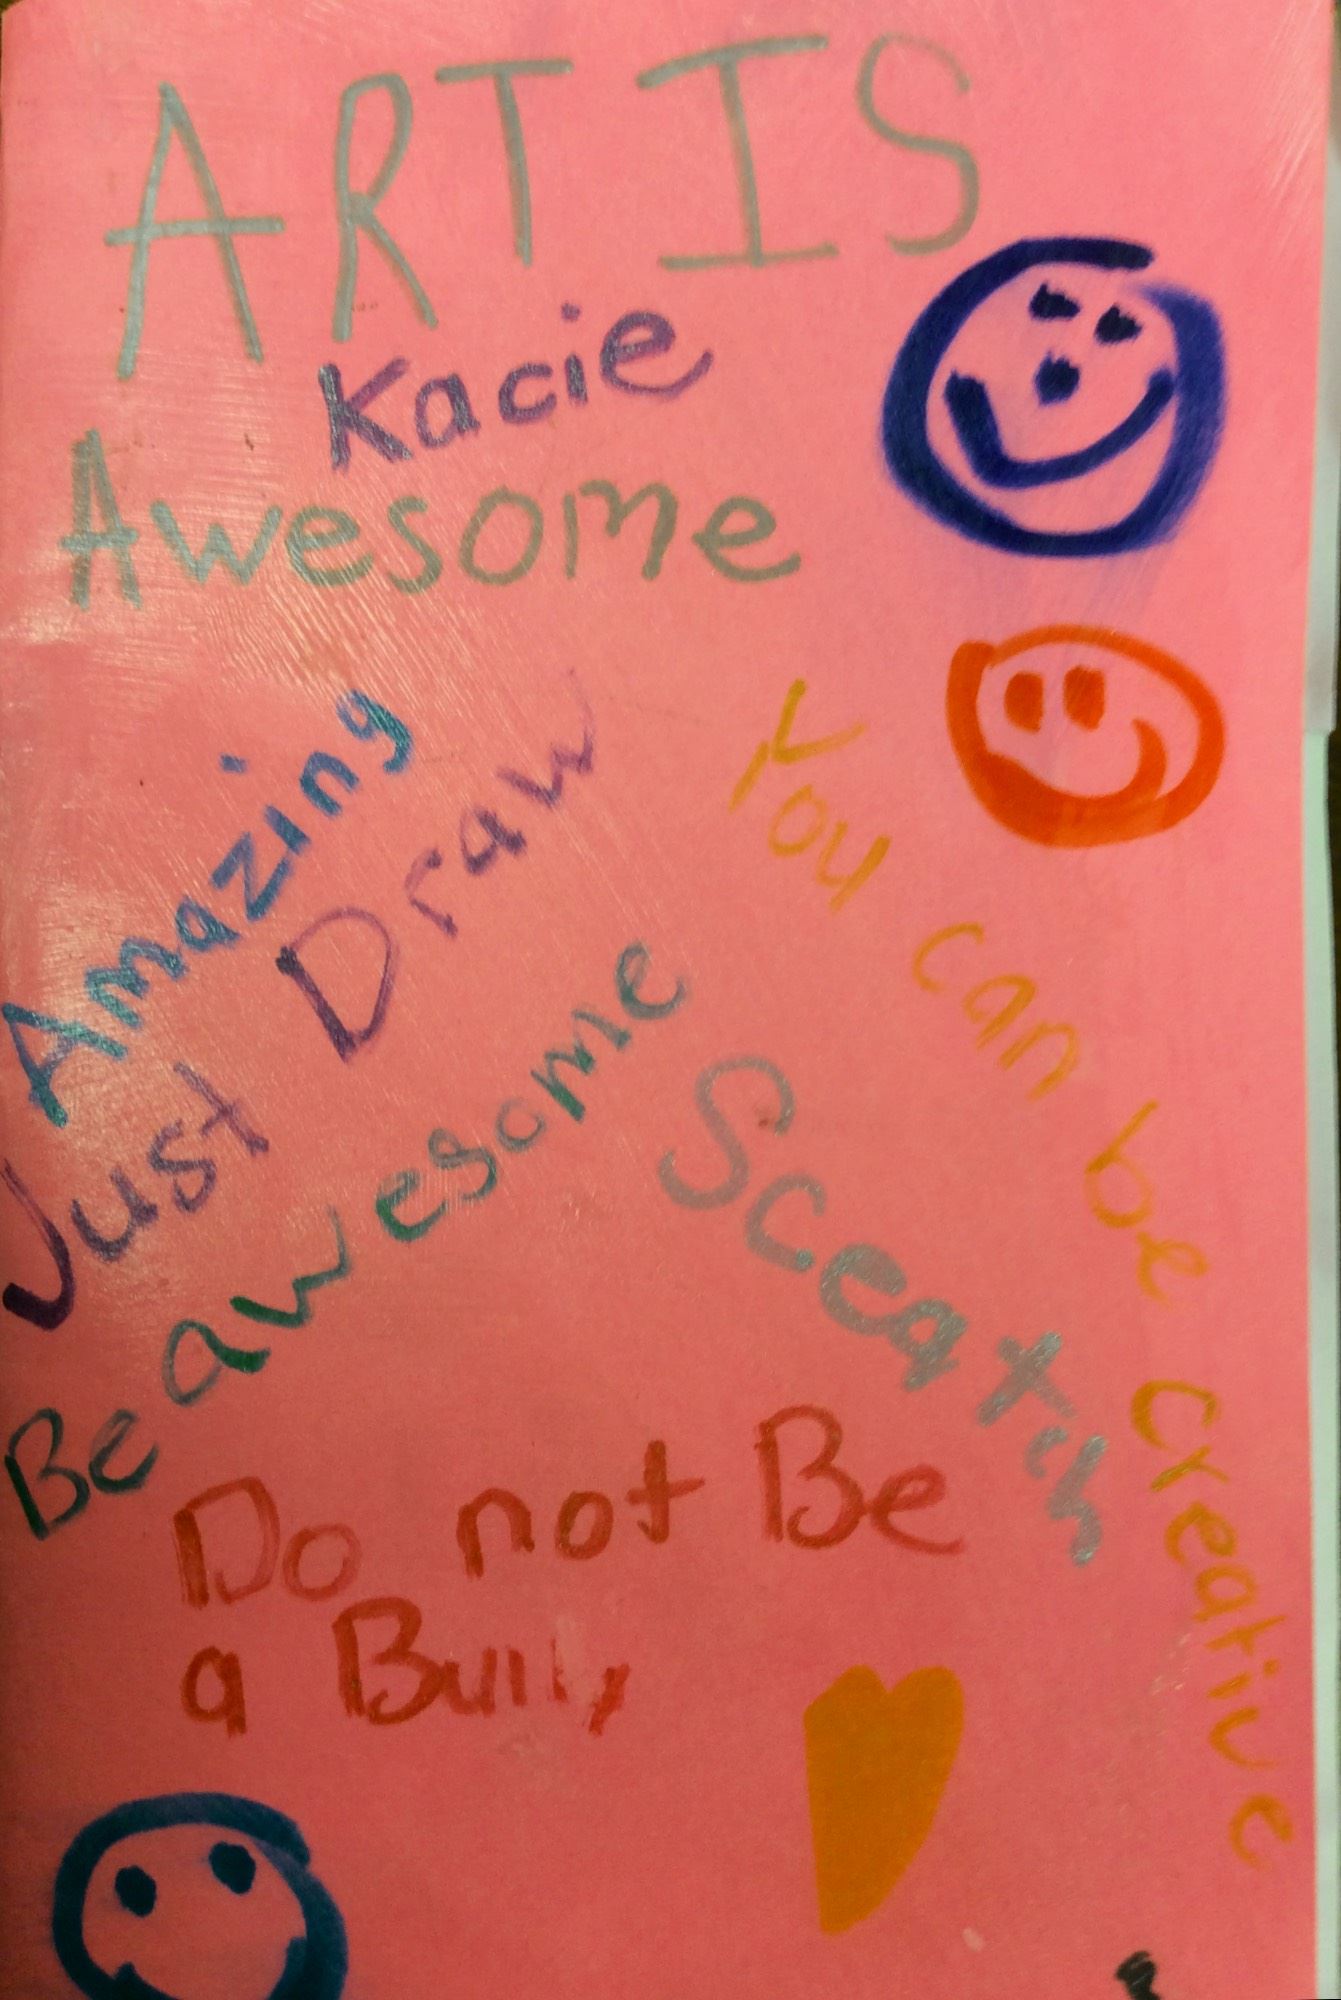 ART IS
Kacie
Awesome
Amazing
Just Draw
Be awesome
You can be creative
Sceatch
Do not Be
a Bully